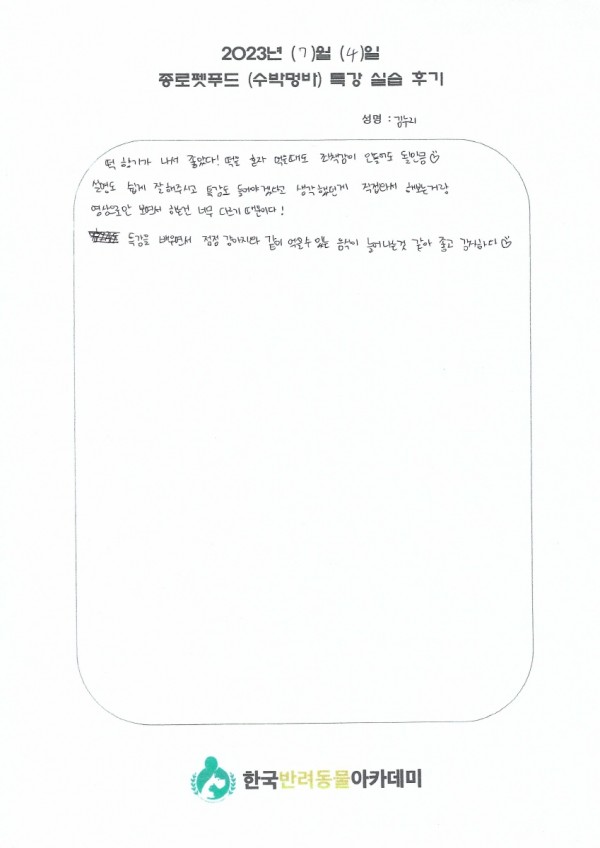 2023년 (7)월 (4)일
종로펫푸드 (수박멍바) 특강 실습 후기
성명 : 김누리
떡 향기가 나서 좋았다! 떡을 혼자 먹는데도 죄책감이 안들어도 될만큼
설명도 쉽게 잘해주시고 특강도 들어야겠다고 생각했던게 직접와서 해보는거랑
영상으로만 보면서 하는건 너무 다르기 때문이다!
특강을 배워면서 점점 강아지와 같이 먹을수 있는 음식이 늘어나는것 같아 좋고 감사하다
한국반려동물아카데미